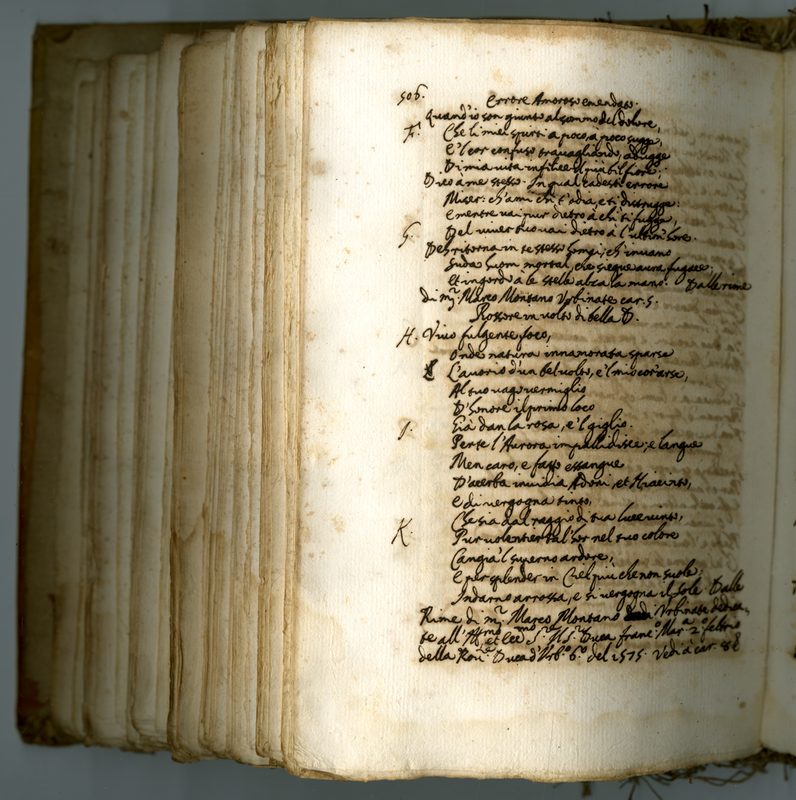 506. Errore Amoroso emendato.
Quand'io son giunto al sommo del dolore,
F. Che li miei spirti a poco, à poco sugge,
E'l cor confuso travagliando, adugge
Di mia vita infilice il più bel fiore:
Dico à me stesso: In qual cadesti errore
Miser: ch'ami chi t'odia, e ti distrugge:
e mentre vai pur dietro à chi ti fugge,
G. Del viver tuo vai dietro à l'ultim'hore.
Deh ritorna in te stesso homai; ch'invano
Suda huom mortal, che siegue aura fugace:
Et ingordo à le stelle alza la mano. Dalle rime
di m.r Marco Montano Urbinate car. 5.
Rossore in volto di bella D.
H. Vivo fulgente foco,
Onde natura innamorata sparse
L'avorio d'un bel volto, e'l mio cor arse,
Al tuo vago vermiglio
D'honore il primo loco
I. Già dan la rosa, e'l giglio.
Perte l'Aurora impallidisce; e langue
Men caro, e fatto essangue
D'acerba invidia Adoni, et Hiacinto,
e di vergogna tinto,
Che sia dal raggio di tua luce vinto,
K. Pur volentier tal'hor nel tuo colore
Cangia'l superno ardore,
e per splender in Ciel più che non suole;
Indarno arrossa, e si vergogna il sole Dalle
Rime di m.r Marco Montano Urbinate dedica-
te all' Ill.mo et Ecc.mo S.r Il S.r Duca Franc.o Mar.a 2.o feltrio
della Rov.a Duca d'Urb.o 6.o del 1575. Vedi à car.